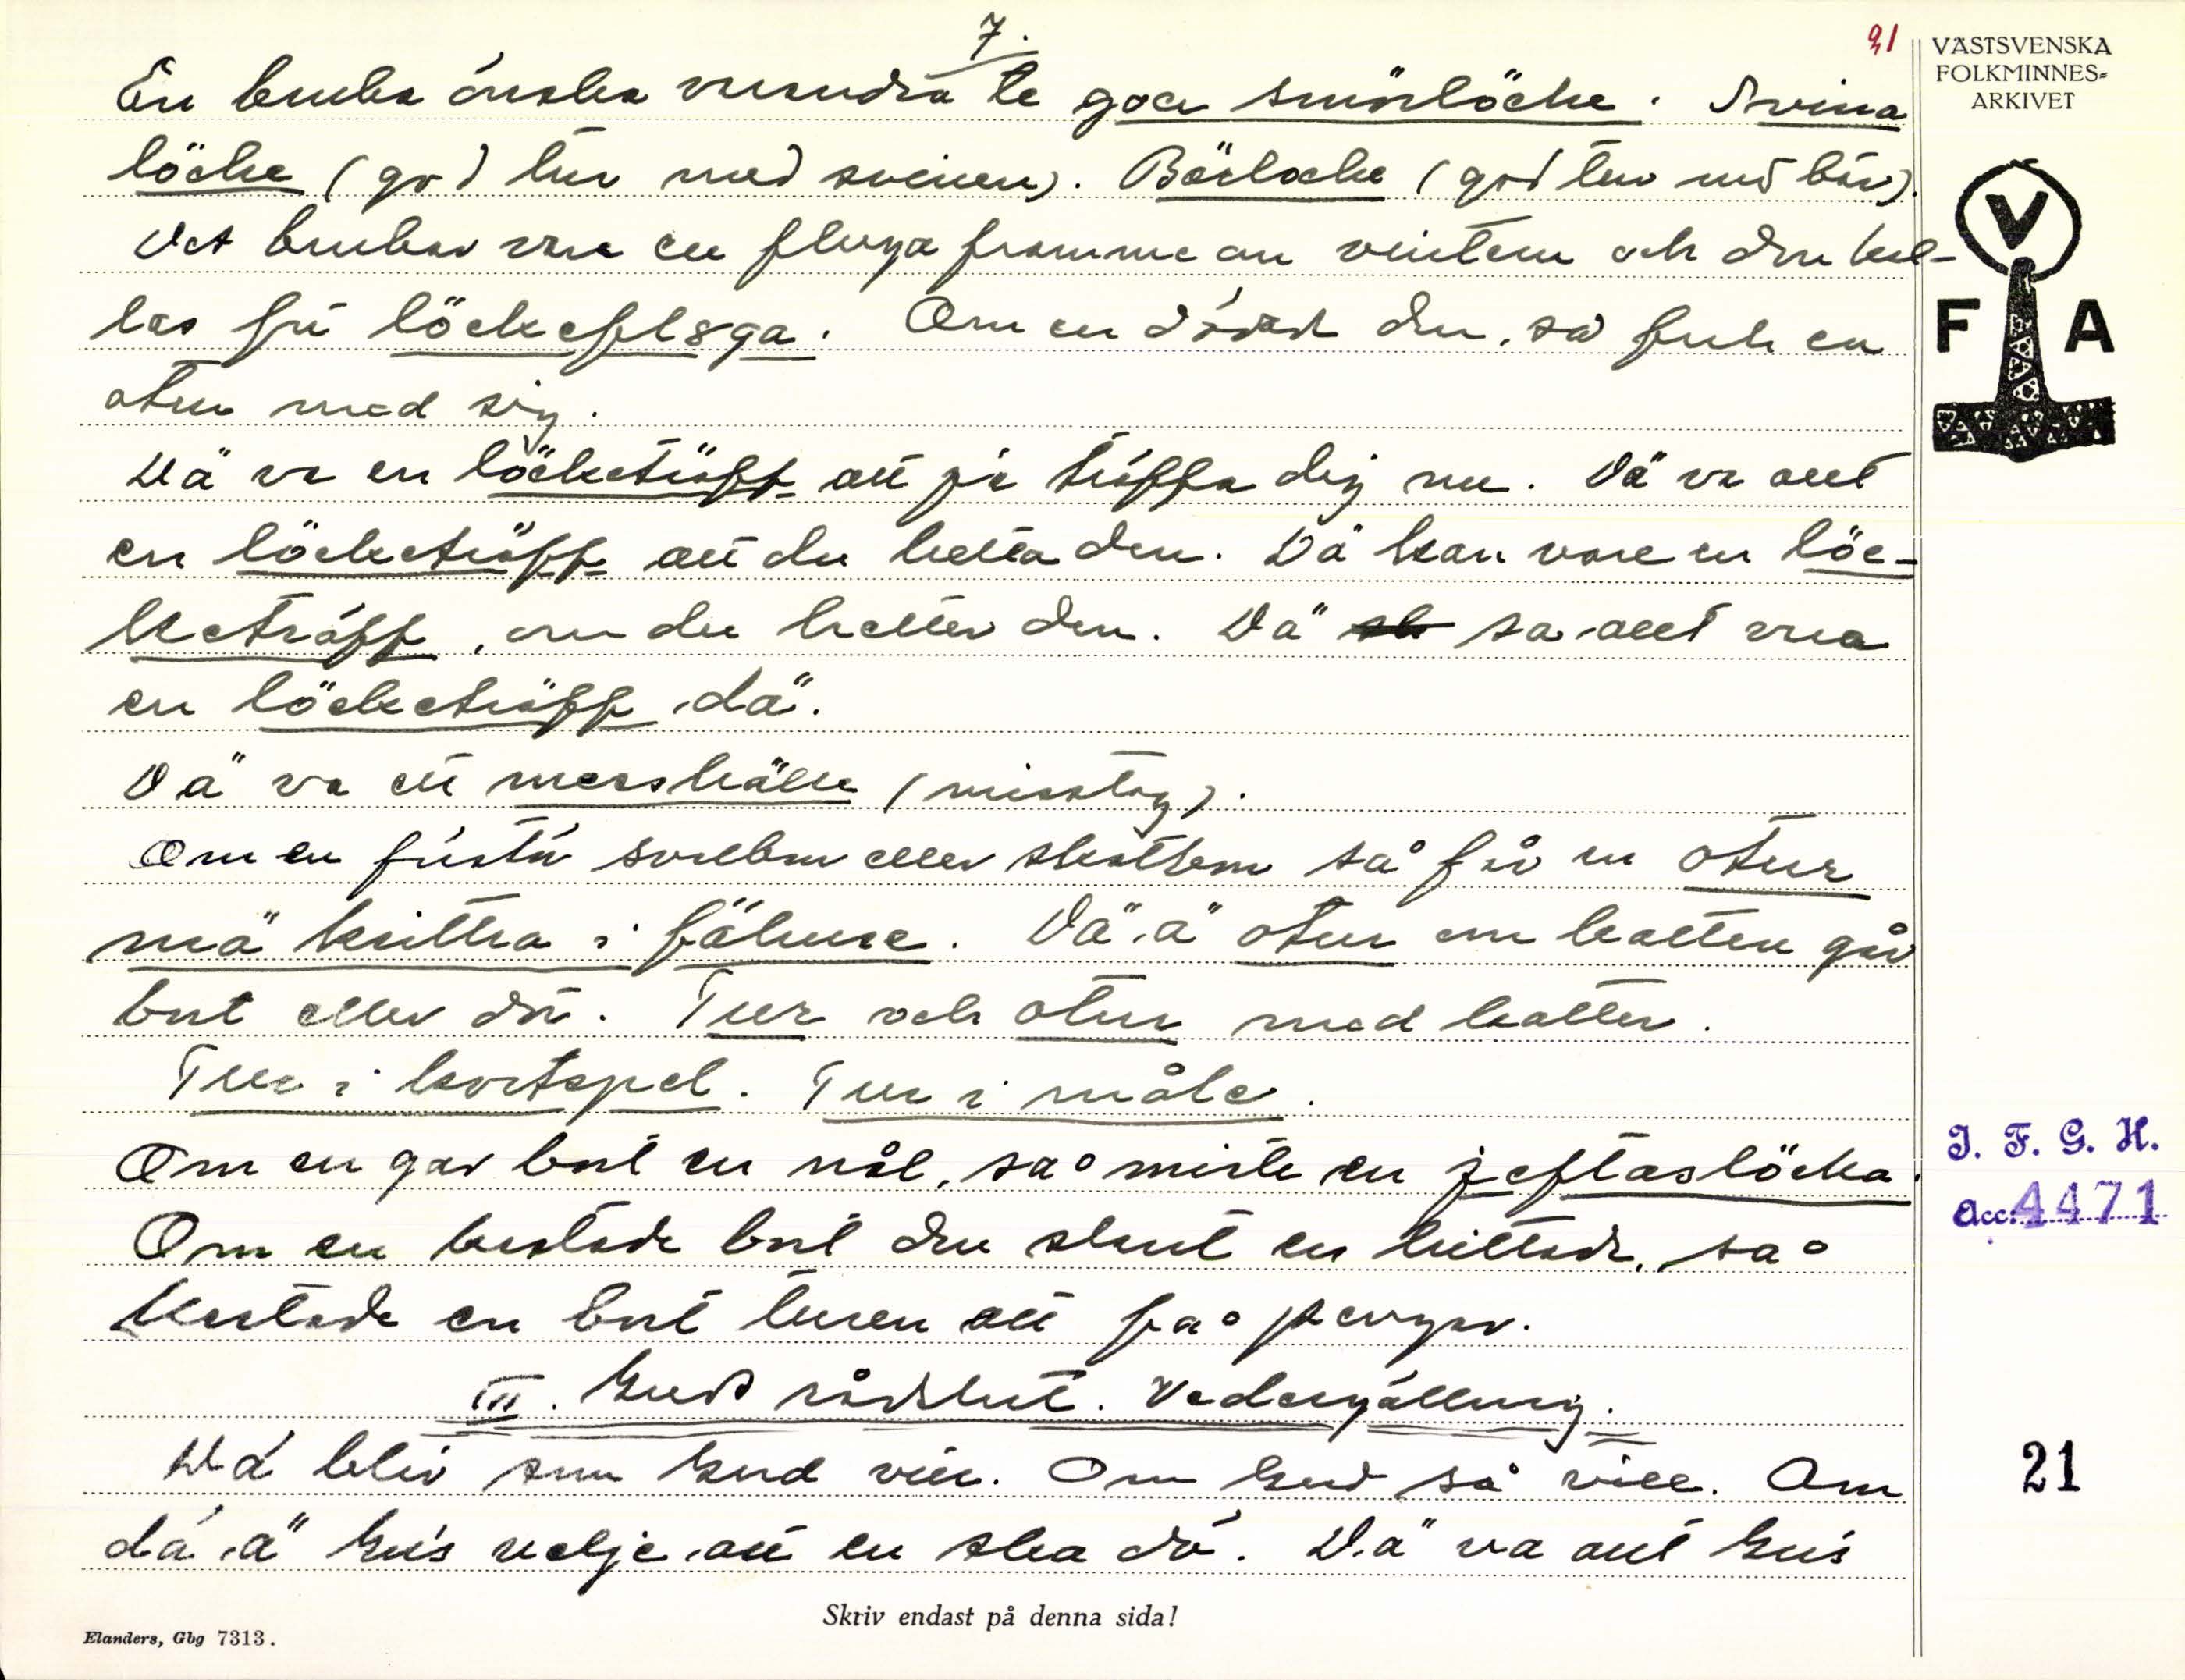 7.
21
VÄSTSVENSKA
FOLKMINNES=
ARKIVET
V
F A
En bruka önska varandra te goa smörlöcke. Svina
löcke (god tur med svinen). Böslocke (god tur med bös).
Det brukar vara en fluga framme om vintern och den kal-
las för löckeflsga. Om en dödad den, så fick en
otur med sig.
Dä va en löcketräff att ja träffa dig nu. Dä va allt
en löcketräff att du hetta den. Dä kan vare en löc-
ketröff, om du hetter den. Dä sa allt vara
en löcketräff dä.
Dä va ett messhälle (misstag).
Om en förstör svalbon eller skatbon så får en otur
mä krittra i fähuse. Dä ä otur om katten går
bort eller dör. Tur och otur med katter.
Tur i kortspel. Tur i måle.
Om en gav bort en nål, så miste en jeftaslöcka.
Om en kastade bort den slant en hittade, så
kastade en bort turen att få pengar.
III. Guds rådslut. Vedergällning.
Dä blir som Gud vill. Om Gud så vill. Om
dä ä Gus velje att en ska dö. Dä va allt Gus
I. F. G. H.
Acc. 4471
21
Skriv endast på denna sida!
Elanders, Gbg 7313.